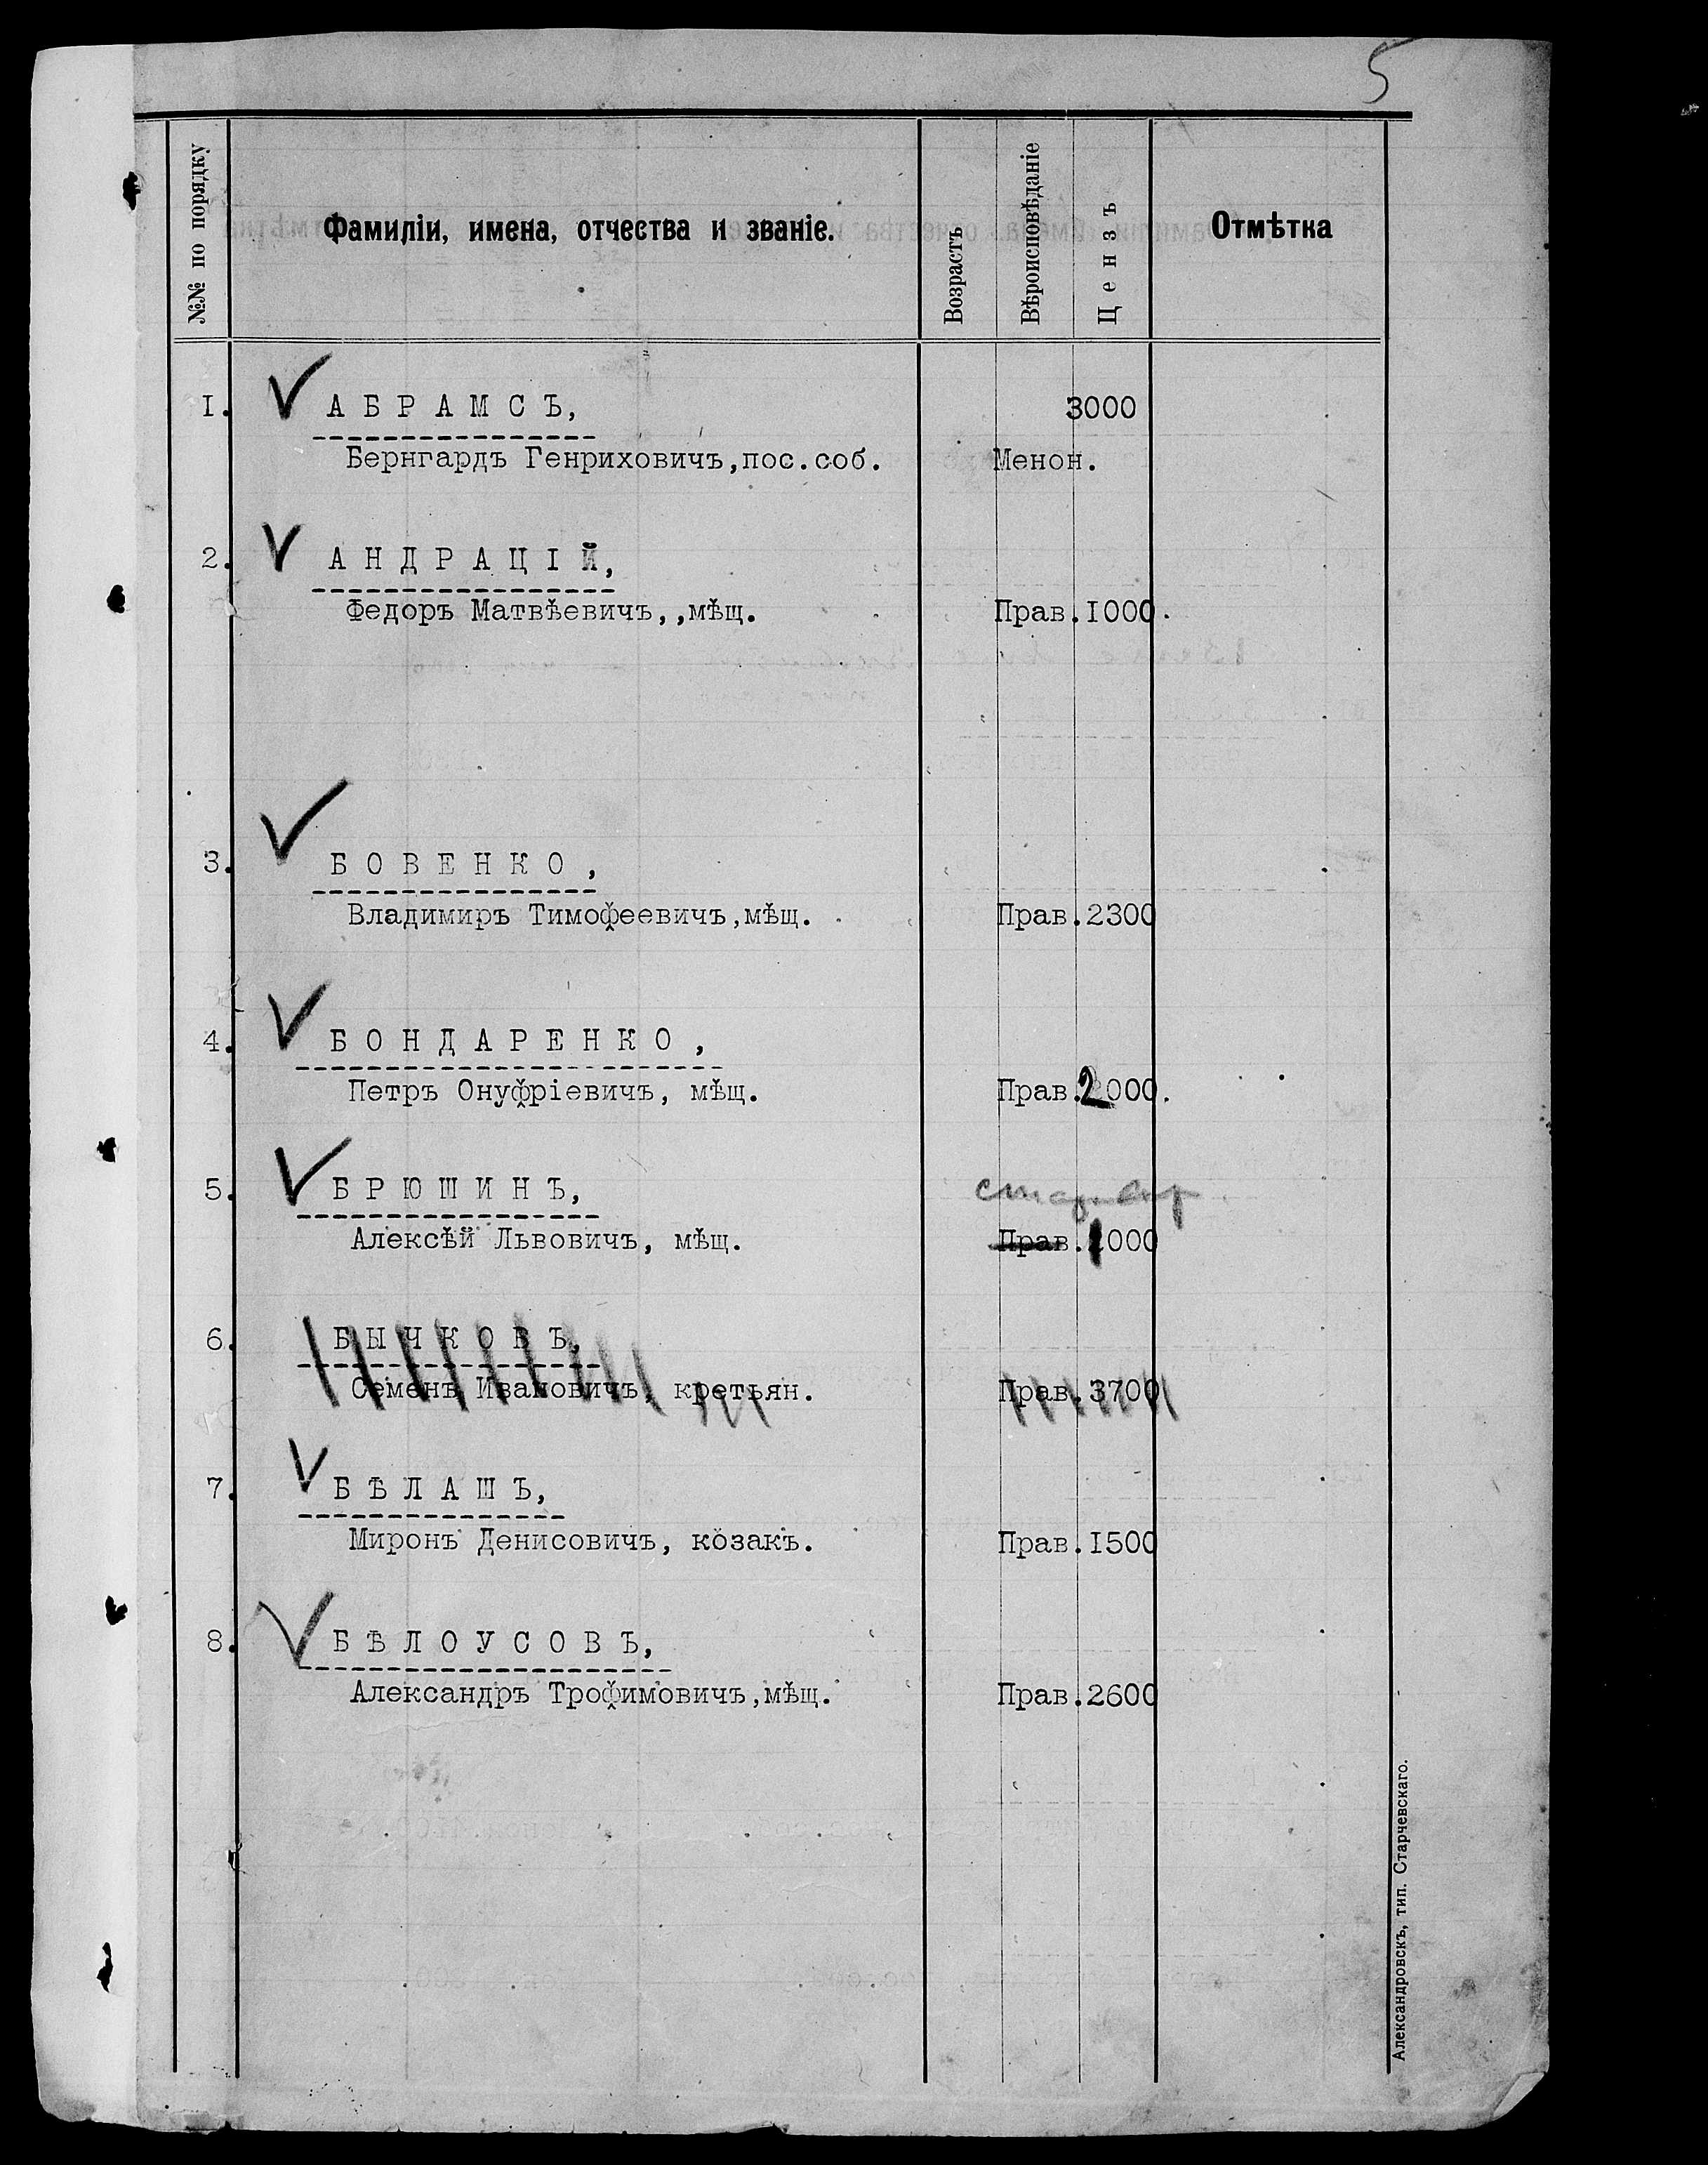 5
№№ по порядку
Фамиліи, имена, отчества и званіе.
Возрастъ
Вѣроисповѣданіе
Цензъ
Отмѣтка
I. АБРАМСЪ, 3000
Бернгардъ Генриховичъ,пос.соб. Менон.
2. АНДРАЦІЙ,
Федоръ Матвѣевичъ,,мѣщ. Прав.I000.
3. БОВЕНКО,
Владимиръ Тимофеевичъ,мѣщ. Прав.2300
4. БОНДАРЕНКО,
Петръ Онуфріевичъ, мѣщ. Прав.2000.
5. БРЮШИНЪ,
Алексѣй Львовичъ, мѣщ. Прав.1000
6. БЫЧКОВЪ,
Семенъ Ивановичъ, кретьян. Прав.3700
7. БѢЛАШЪ,
Миронъ Денисовичъ, козакъ. Прав.I500
8. БѢЛОУСОВЪ,
Александръ Трофимовичъ,мѣщ. Прав.2600
Александровскъ, тип. Старчевскаго.